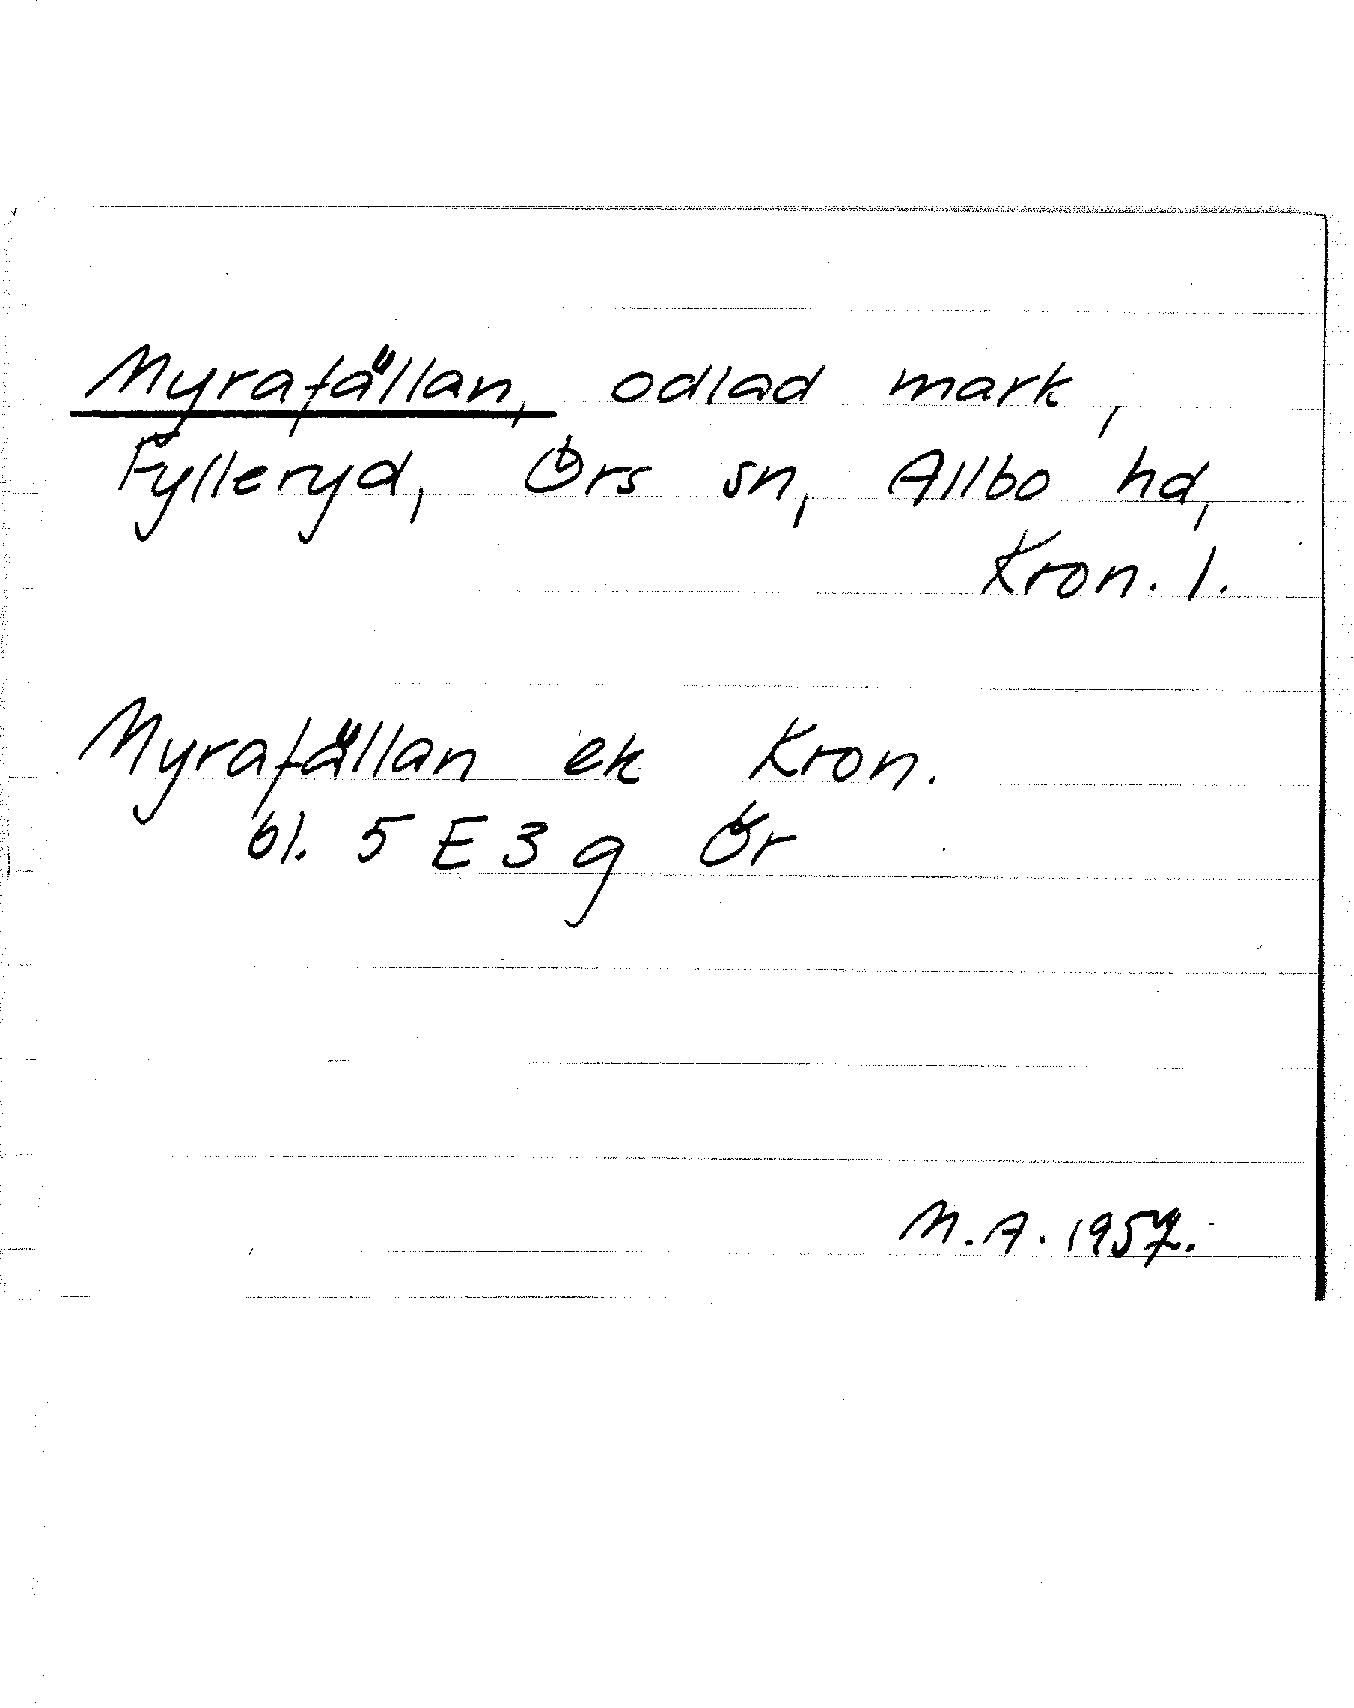 Myrafällan, odlad mark,
Fylleryd, Örs sn, Allbo hd,
Kron. l.
Myrafällan ek Kron.
bl. 5 E 3 g Ör
M.A. 1957.